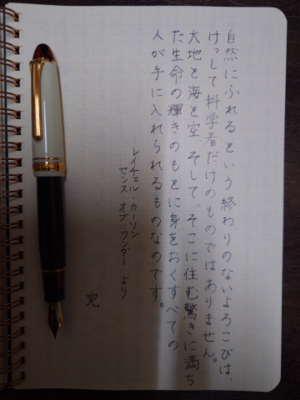 自然にふれるという終わりのないよろこびは、
けっして科学者だけのものではありません。
大地と海と空、そして、そこに住む驚きに満ち
た生命の輝きのもとに身をおくすべての
人が手に入れられるものなのです。
レイチェル・カーソン
センス オブ ワンダー より
完